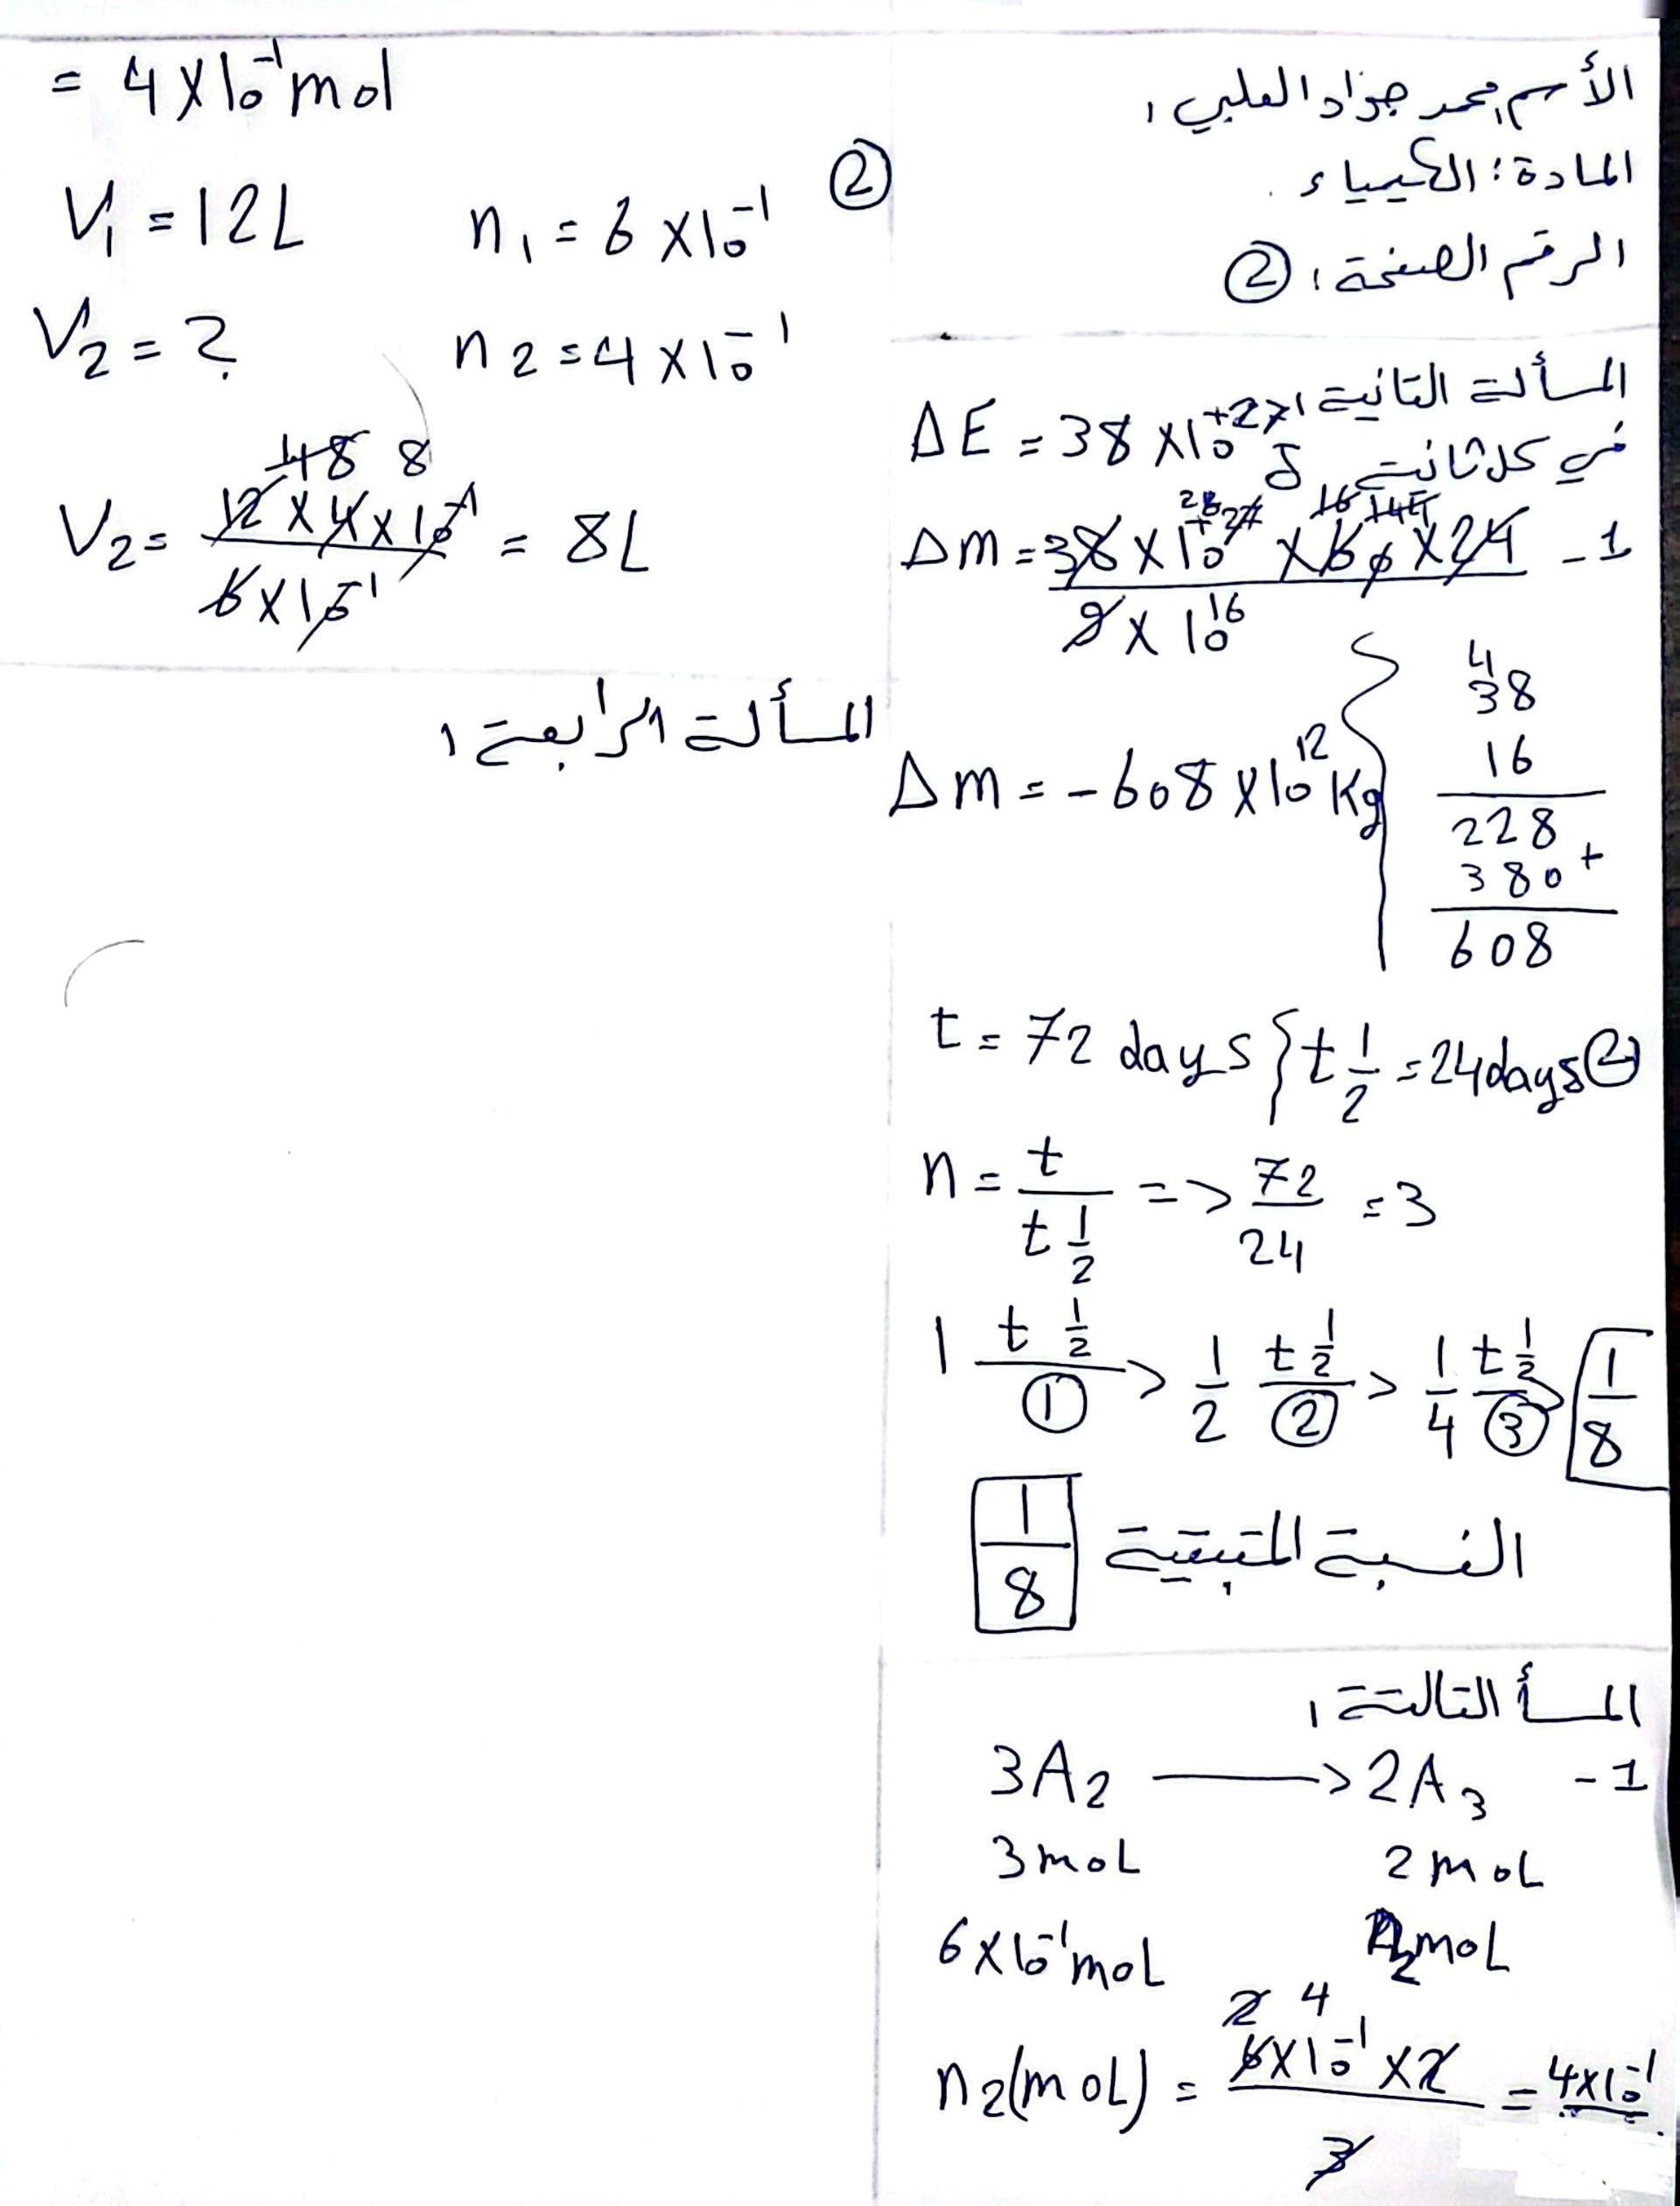 الأسم، محمد جواد العلبي،
المادة: الكيمياء.
الرقم الصفحة: ②
المسألة التانية،
ΔE = 38 × 10⁺²⁷ J في كل ثانية
Δm = 38 × 10⁺²⁷ × 60 × 24 / 9 × 10¹⁶ - 1
28 16 144
Δm = - 608 × 10¹² Kg
4
38
16
228
380 +
608
t = 72 days } t 1/2 = 24 days ②
n = t / t 1/2 => 72 / 24 = 3
1 t 1/2 ① > 1/2 t 1/2 ② > 1/4 t 1/2 ③ > 1/8
النسبة المتبقية 1/8
المسأ التالتة،
3A₂ → 2A₃ - 1
3 moL 2 moL
6 × 10⁻¹ moL n₂ moL
2 4
n₂(moL) = 6 × 10⁻¹ × 2 / 3 = 4 × 10⁻¹
= 4 × 10⁻¹ mol
②
V₁ = 12L n₁ = 6 × 10⁻¹
V₂ = ? n₂ = 4 × 10⁻¹
48 8
V₂ = 12 × 4 × 10⁻¹ / 6 × 10⁻¹ = 8L
المسألة الرابعة،